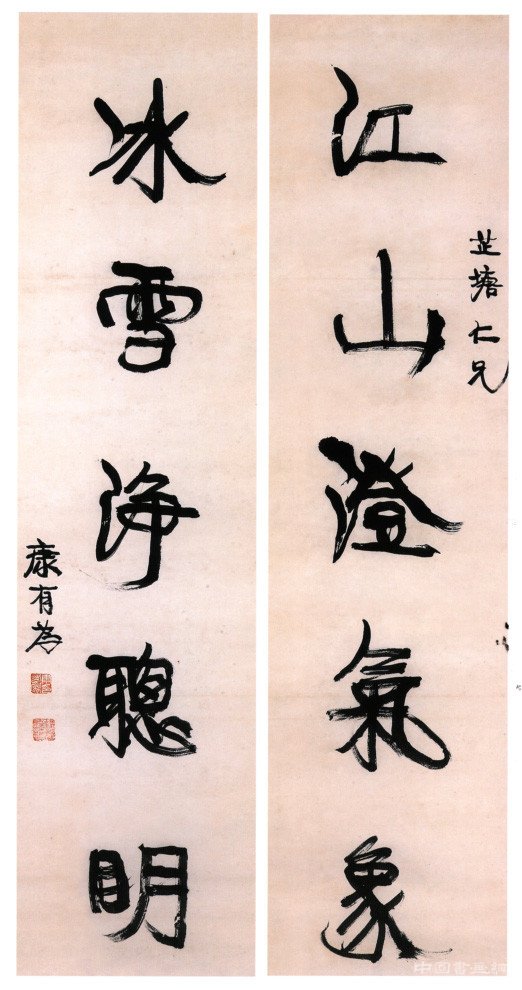 芷塘仁兄
江山澄氣象
冰雪淨聰明
康有為
中国書画網